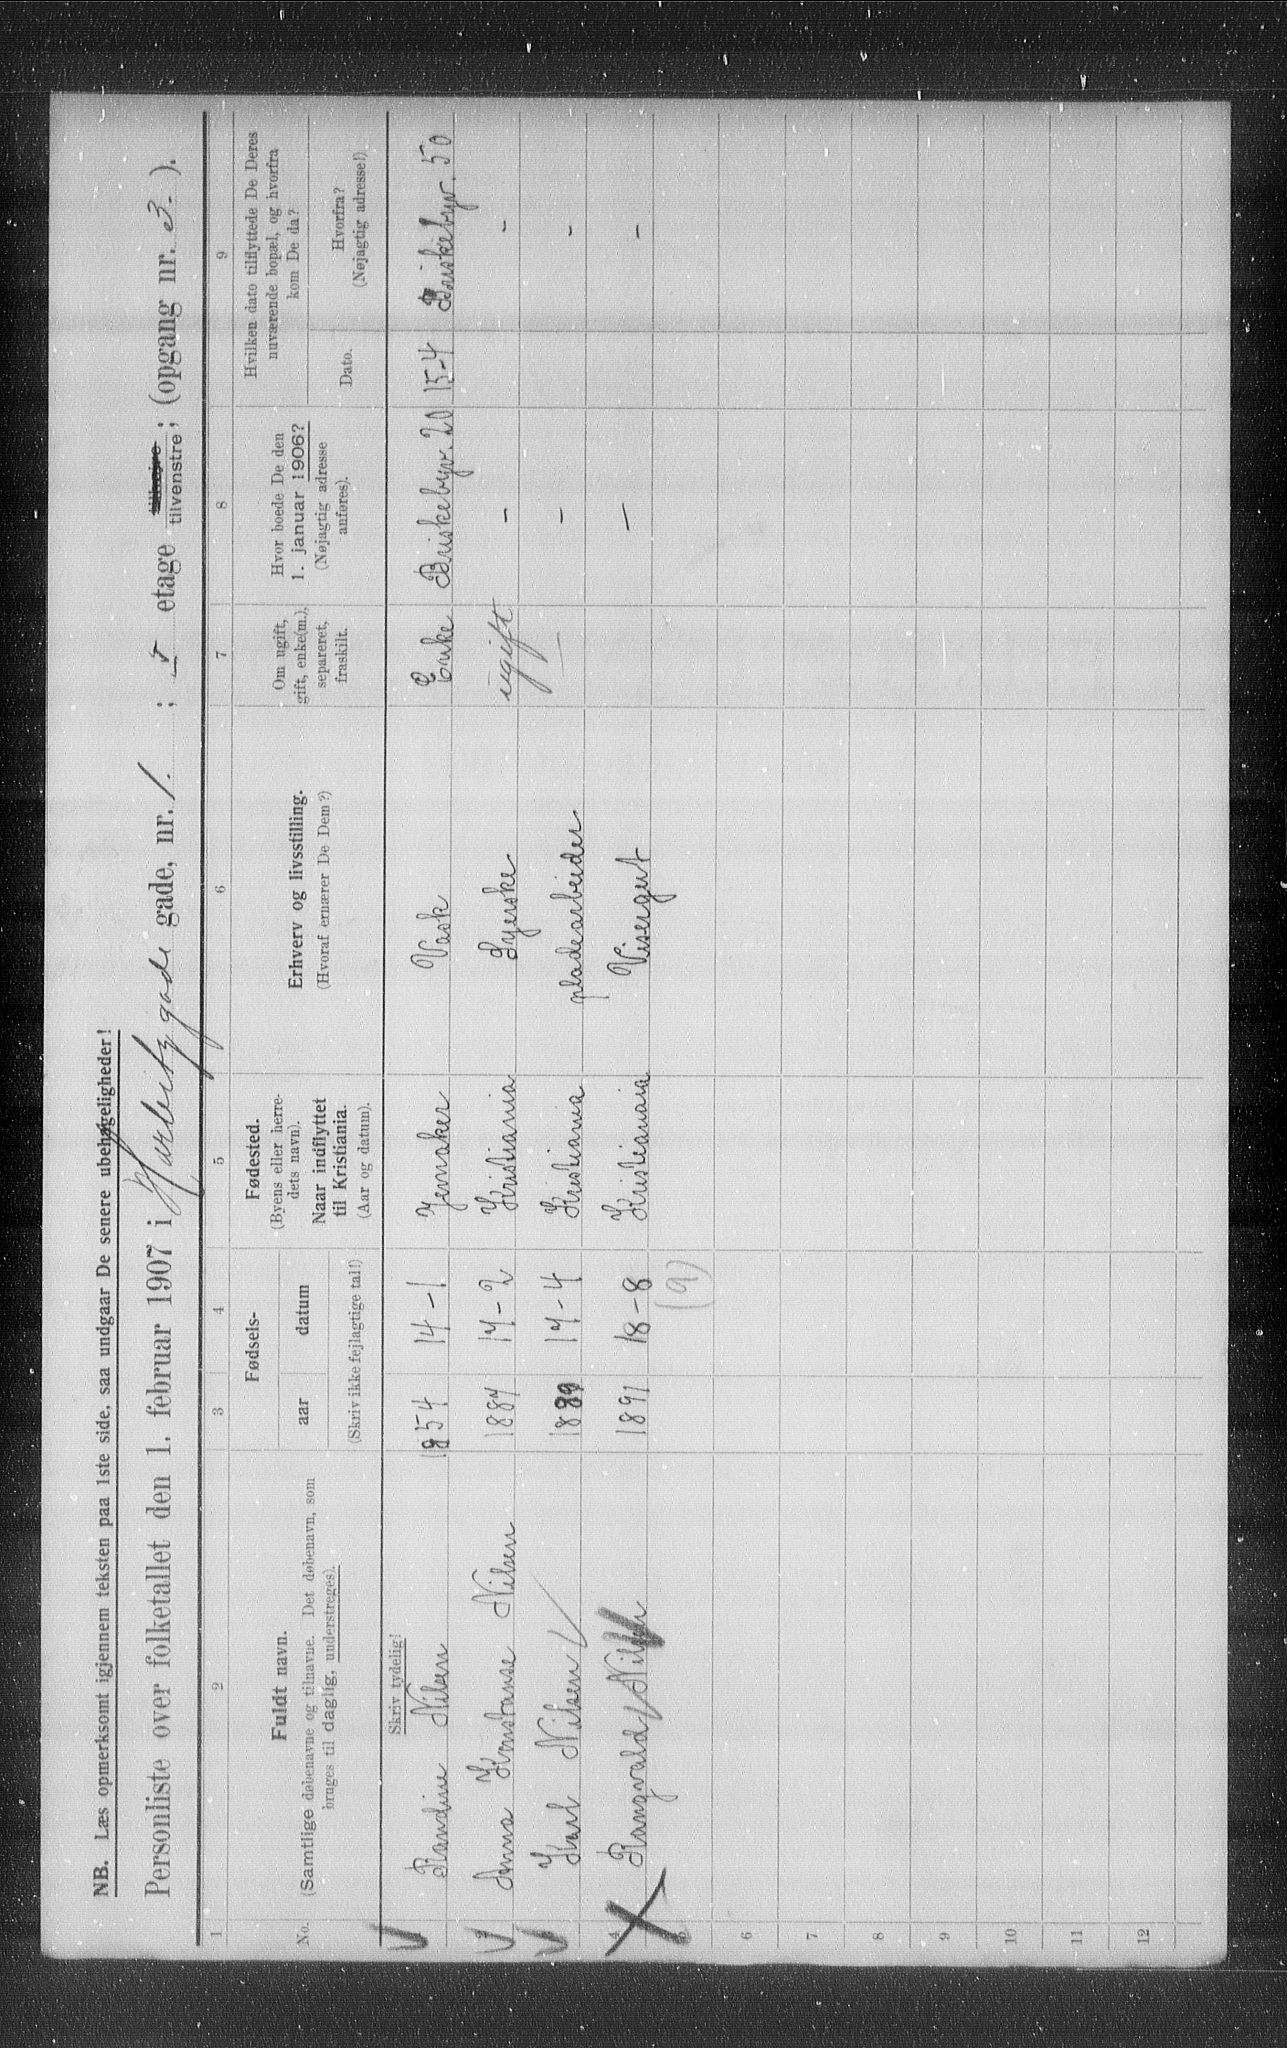 NB. Læs opmerksomt igjennem teksten paa 1ste side, saa undgaar De senere ubehageligheder!
Personliste over folketallet den 1. februar 1907 i Harbitz gade gade, nr. 1. ; etage tilhøire tilvenstre; (opgang nr. 3-).
1 2 3 4 5 6 7 8 9
No.
Fuldt navn.
(Samtlige døbenavne og tilnavne. Det døbenavn, som
bruges til daglig, understreges).
Fødsels-
aar datum
(Skriv ikke fejlagtige tal!)
Fødested.
(Byens eller herre-
dets navn).
Naar indflyttet
til Kristiania.
(Aar og datum).
Erhverv og livsstilling.
(Hvoraf ernærer De Dem?)
Om ugift,
gift, enke(m.),
separeret,
fraskilt.
Hvor boede De den
1. januar 1906?
(Nøjagtig adresse
anføres).
Hvilken dato tilflyttede De Deres
nuværende bopæl, og hvorfra
kom De da?
Dato.
Hvorfra?
(Nøjagtig adresse!).
Skriv tydelig!
Randine Nilsen 1854 14-1 Jevnaker Vask Enke Briskebyv. 20 15-4 Briskebyv. 50
Anna Konstanse Nilsen 1887 17-2 Kristiania Syerske ugift - -
Karl Nilsen 17-4 Kristiania pladearbeider - - -
4 Rangvald Nilsen 1891 18-8 Kristianaia Visergut - -
5 (9)
6
7
8
9
10
11
12